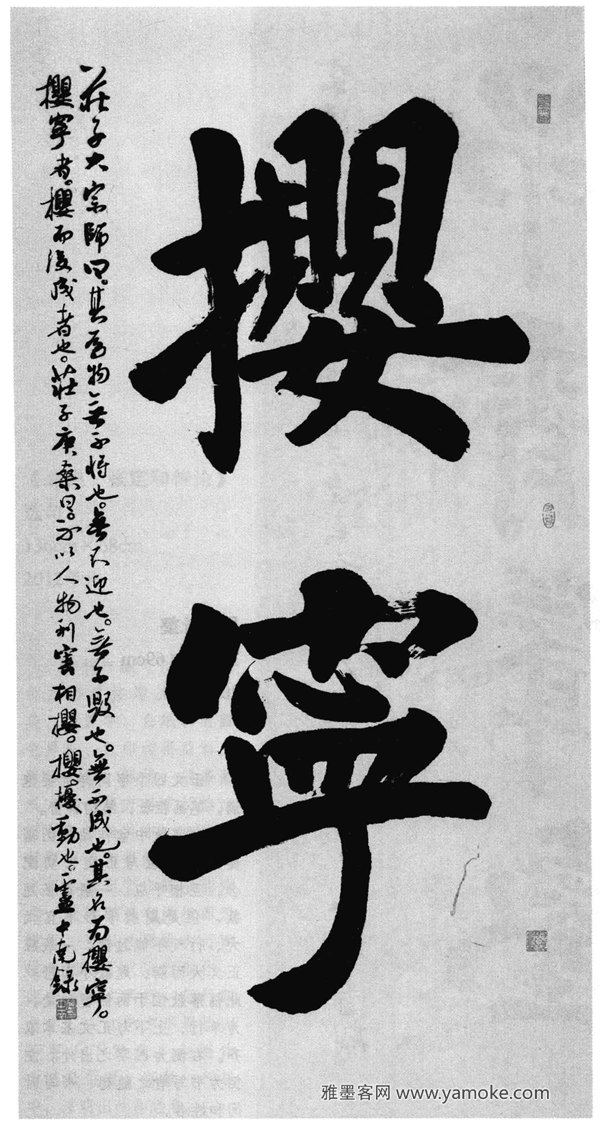 攖
寧
莊子大宗師曰。其為物無不將也。無不迎也。無不毀也。無不成也。其名為攖寧。
攖寧者。攖而後成者也。莊子庚桑曰。不以人物利害相攖。攖擾動也。盧中南錄
雅墨客网 www.yamoke.com